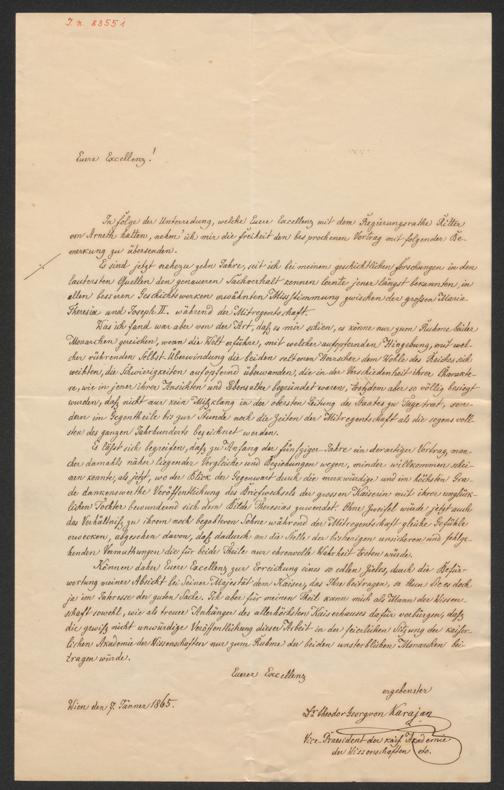 J. N. 83551
Euere Excellenz!
In folge der Unterredung, welche Euere Excellenz mit dem Regierungsrathe Ritter
von Arneth hatten, nehm' ich mir die Freiheit den besprochenen Vortrag mit folgender Be-
merkung zu übersenden.
Es sind jetzt nahezu zehn Jahre, seit ich bei meinen geschichtlichen Forschungen in den
lautersten Quellen den genaueren Sachverhalt kennen lernte jener längst bekannten, in
allen bessern Geschichtswerken erwähnten Missstimmung zwischen der großen Maria
Theresia und Joseph II. während der Mitregentschaft.
Was ich fand war aber von der Art, daß es mir schien, es könne nur zum Ruhme beider
Monarchen gereichen, wenn die Welt erführe, mit welcher aufopfernden Hingebung, mit wel-
cher rührenden Selbst-Überwindung die beiden seltenen Herrscher dem Wohle des Reiches sich
weihten, die Schwierigkeiten aufopfernd überwanden, die in der Verschiedenheit ihrer Charakte-
re, wie in jener ihrer Ansichten und Lebensalter begründet waren, trotzdem aber so völlig besiegt
wurden, daß nicht nur kein Mißklang in der obersten Leitung des Staates zu Tage trat, son-
dern im Gegentheile bis zur Stunde noch die Zeiten der Mitregentschaft als die segens voll-
sten des ganzen Jahrhunderts bezeichnet werden.
Es läßt sich begreifen, daß zu Anfang der fünfziger Jahre ein derartiger Vortrag, man-
cher damahls näher liegender Vergleiche und Beziehungen wegen, minder willkommen schei-
nen konnte, als jetzt, wo der Blick der Gegenwart durch die merkwürdige und im höchsten Gra-
de dankenswerthe Veröffentlichung des Briefwechsels der grossen Kaiserin mit ihrer unglück-
lichen Tochter bewundernd sich dem Bilde Theresias zuwendet. Ohne Zweifel würde jetzt auch
das Verhältniß zu ihrem hoch begabten Sohne während der Mitregentschaft gleiche Gefühle
erwecken, abgesehen davon, daß dadurch an die Stelle der bisherigen unsicheren und fehlge-
henden Vermuthungen die für beide Theile nur ehrenvolle Wahrheit treten würde.
Können daher Euere Excellenz zur Erreichung eines so edlen Zieles, durch die Befür-
wortung meiner Absicht bei Seiner Majestät dem Kaiser, das Ihre beitragen, so thun Sie es doch
ja im Interesse der guten Sache. Ich aber für meinen Theil kann mich als Mann der Wissen-
schaft sowohl, wie als treuer Anhänger des allerhöchsten Kaiserhauses dafür verbürgen, daß
die gewiß nicht unwürdige Veröffentlichung dieser Arbeit in der feierlichen Sitzung der kaiser-
lichen Akademie der Wissenschaften nur zum Ruhme der beiden unsterblichen Monarchen bei-
tragen würde.
Euerer Excellenz
ergebenster
Wien den 7. Jänner 1865.
Dr. Theodor Georg von Karajan
Vice-Praesident der kais. Akademie
der Wissenschaften etc.